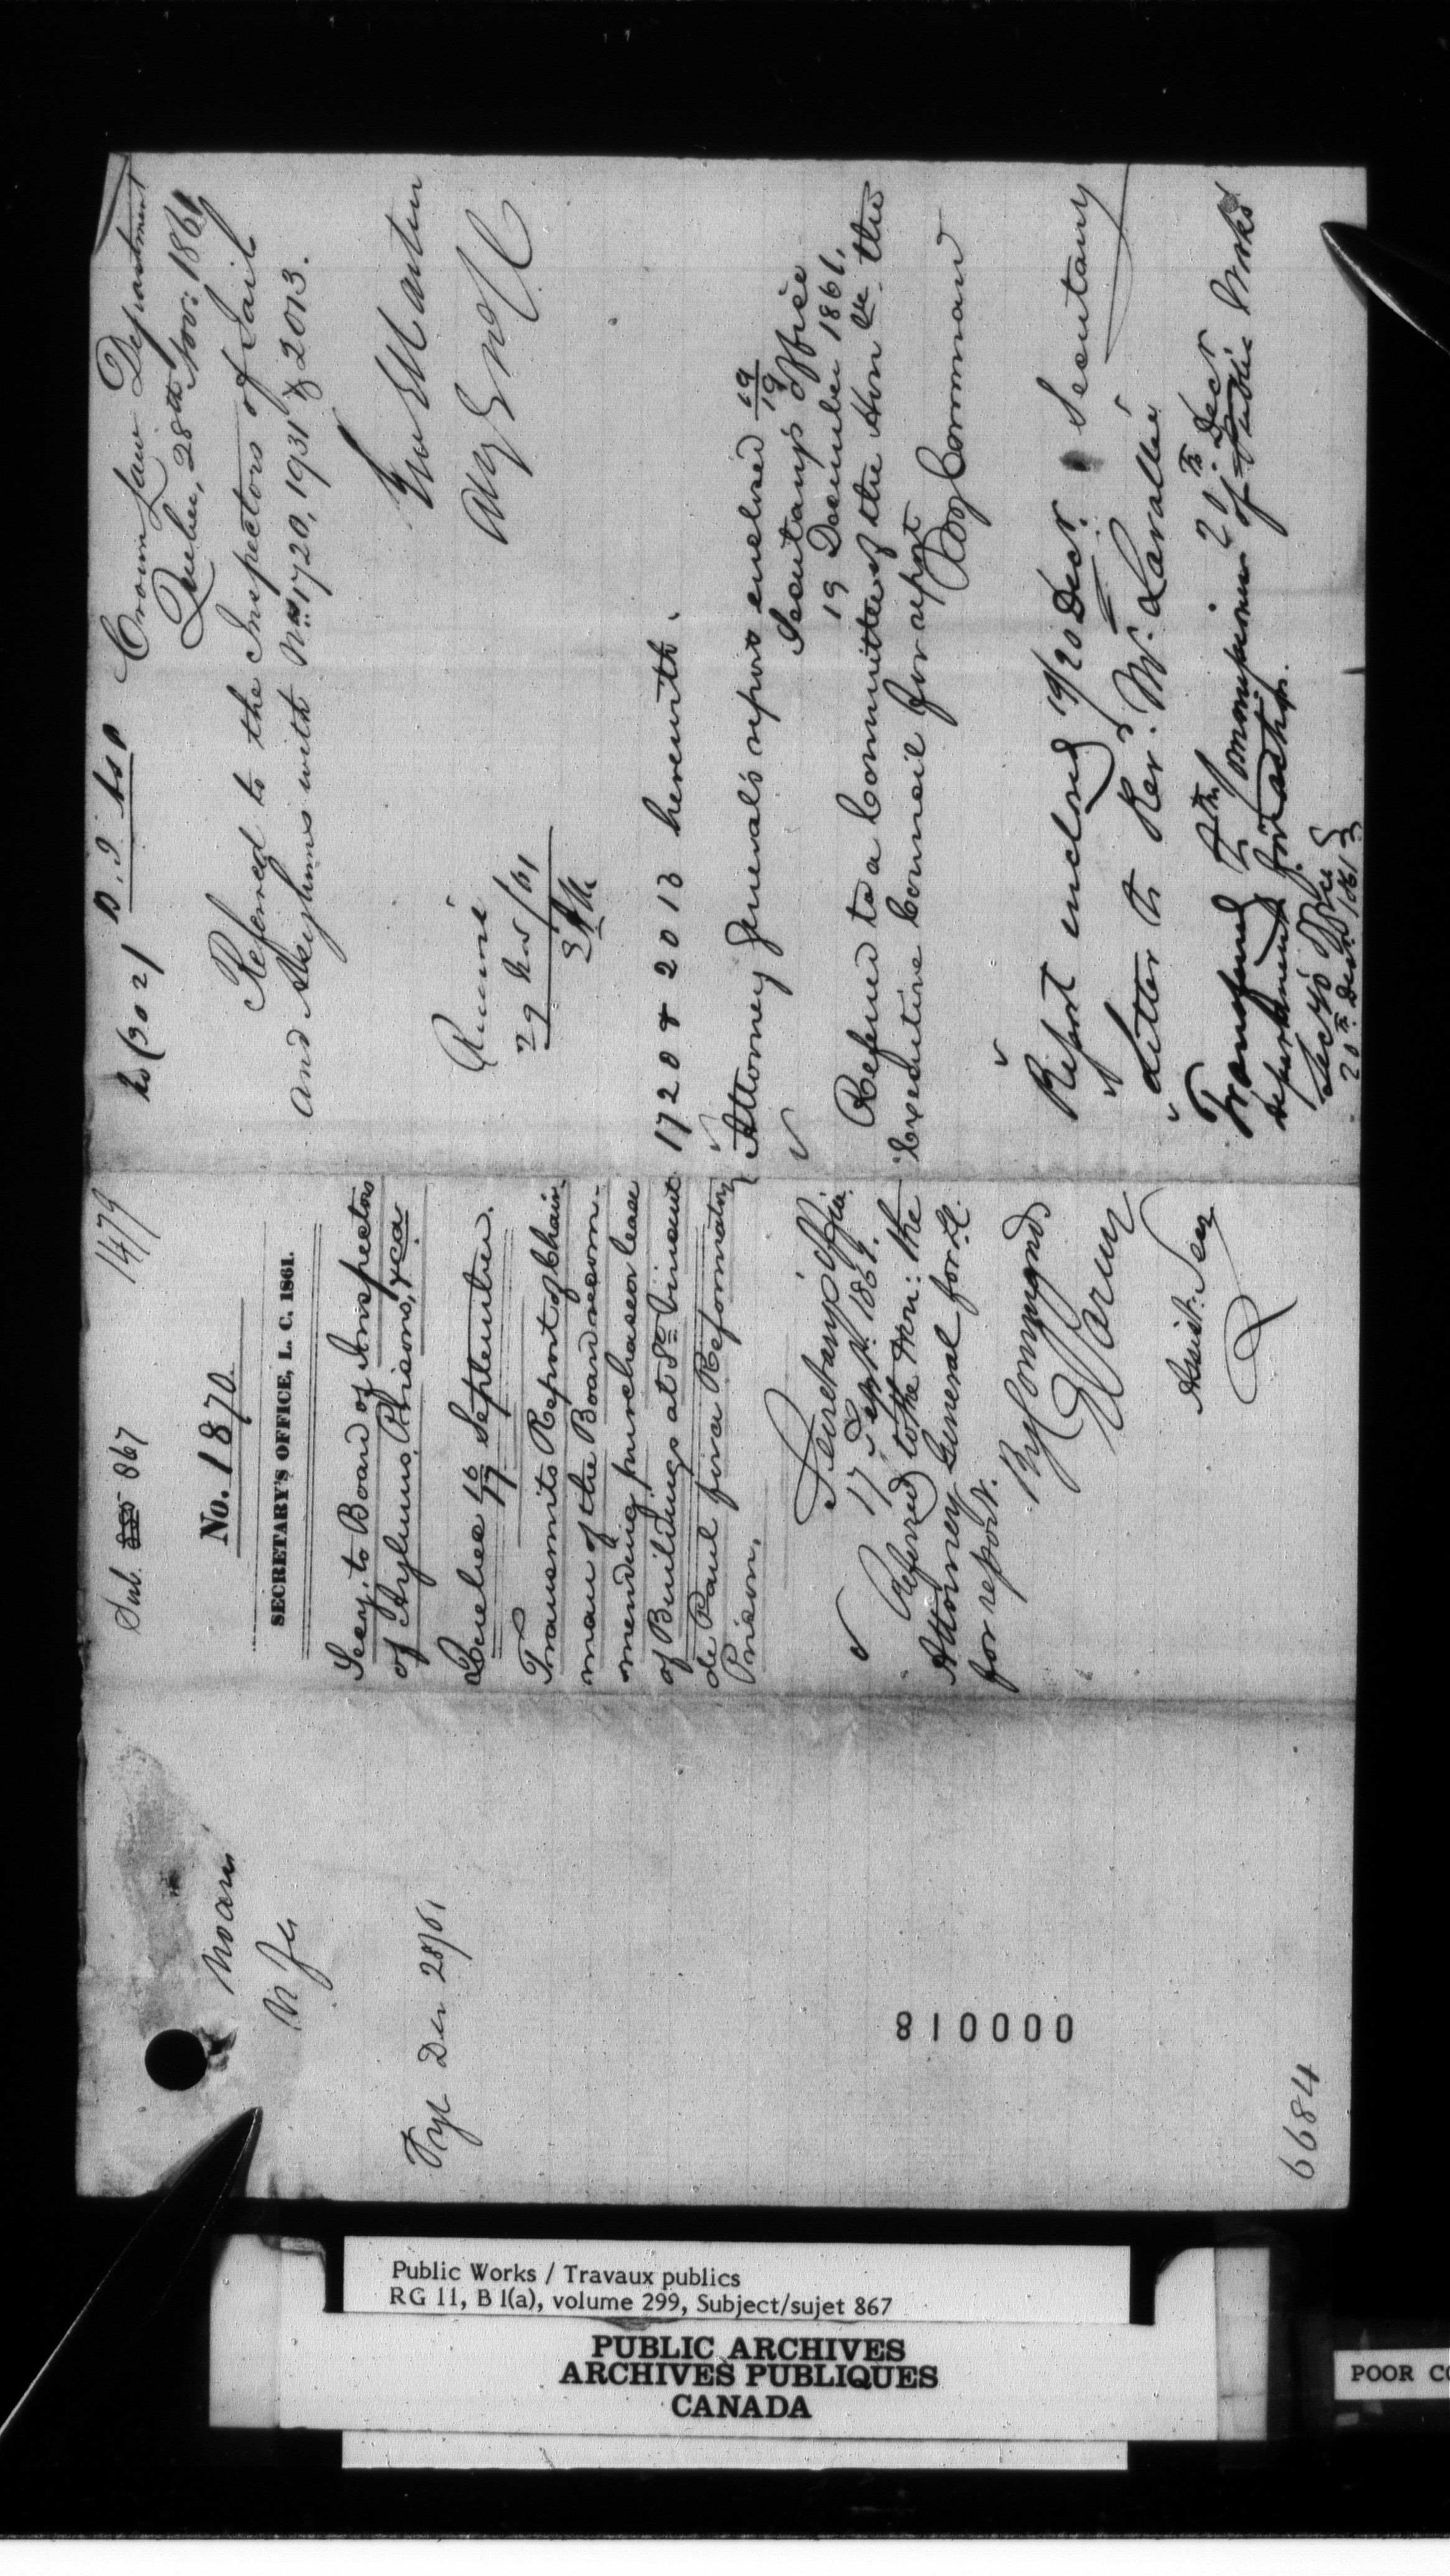 Noam
Dec 28/61
810000
6684
Sub. 867
1479
No. 1870
SECRETARY'S OFFICE, L. C. 1861.
Secy. to Board of Inspectors
of Asylums, Prisons, &ca
Quebec 16/17 September.
Transmits Report of Chair-
man of the Board recom-
mending purchase or lease
of Buildings at St. Vincent
de Paul for a Reformatory
Prison.
Secretary's Office
17 Sept. 1861.
Referred to the Hon: the
Attorney General for L.C.
for report.
By Command
Assist: Secy
Crown Law Department
Quebec, 28th Nov: 1861
Referred to the Inspectors of Jails
and Asylums with Nos. 1720, 1931 & 2013.
Atty Genl L C
Received
29 Nov/61
1720 & 2013 herewith.
Attorney General's report enclosed 19/19
Secretary's Office
19 December 1861.
Referred to a Committee of the Hon the
Executive Council for report
By Command
Secretary
Report enclosed 19/20 Decr.
Letter to Revd. M. Lavallée 20th Decr
Transferred to the Commissioner of Public Works
department for action.
Secy's Office
20th Decr. 1861
Public Works / Travaux publics
RG 11, B 1(a), volume 299, Subject/sujet 867
PUBLIC ARCHIVES
ARCHIVES PUBLIQUES
CANADA
POOR